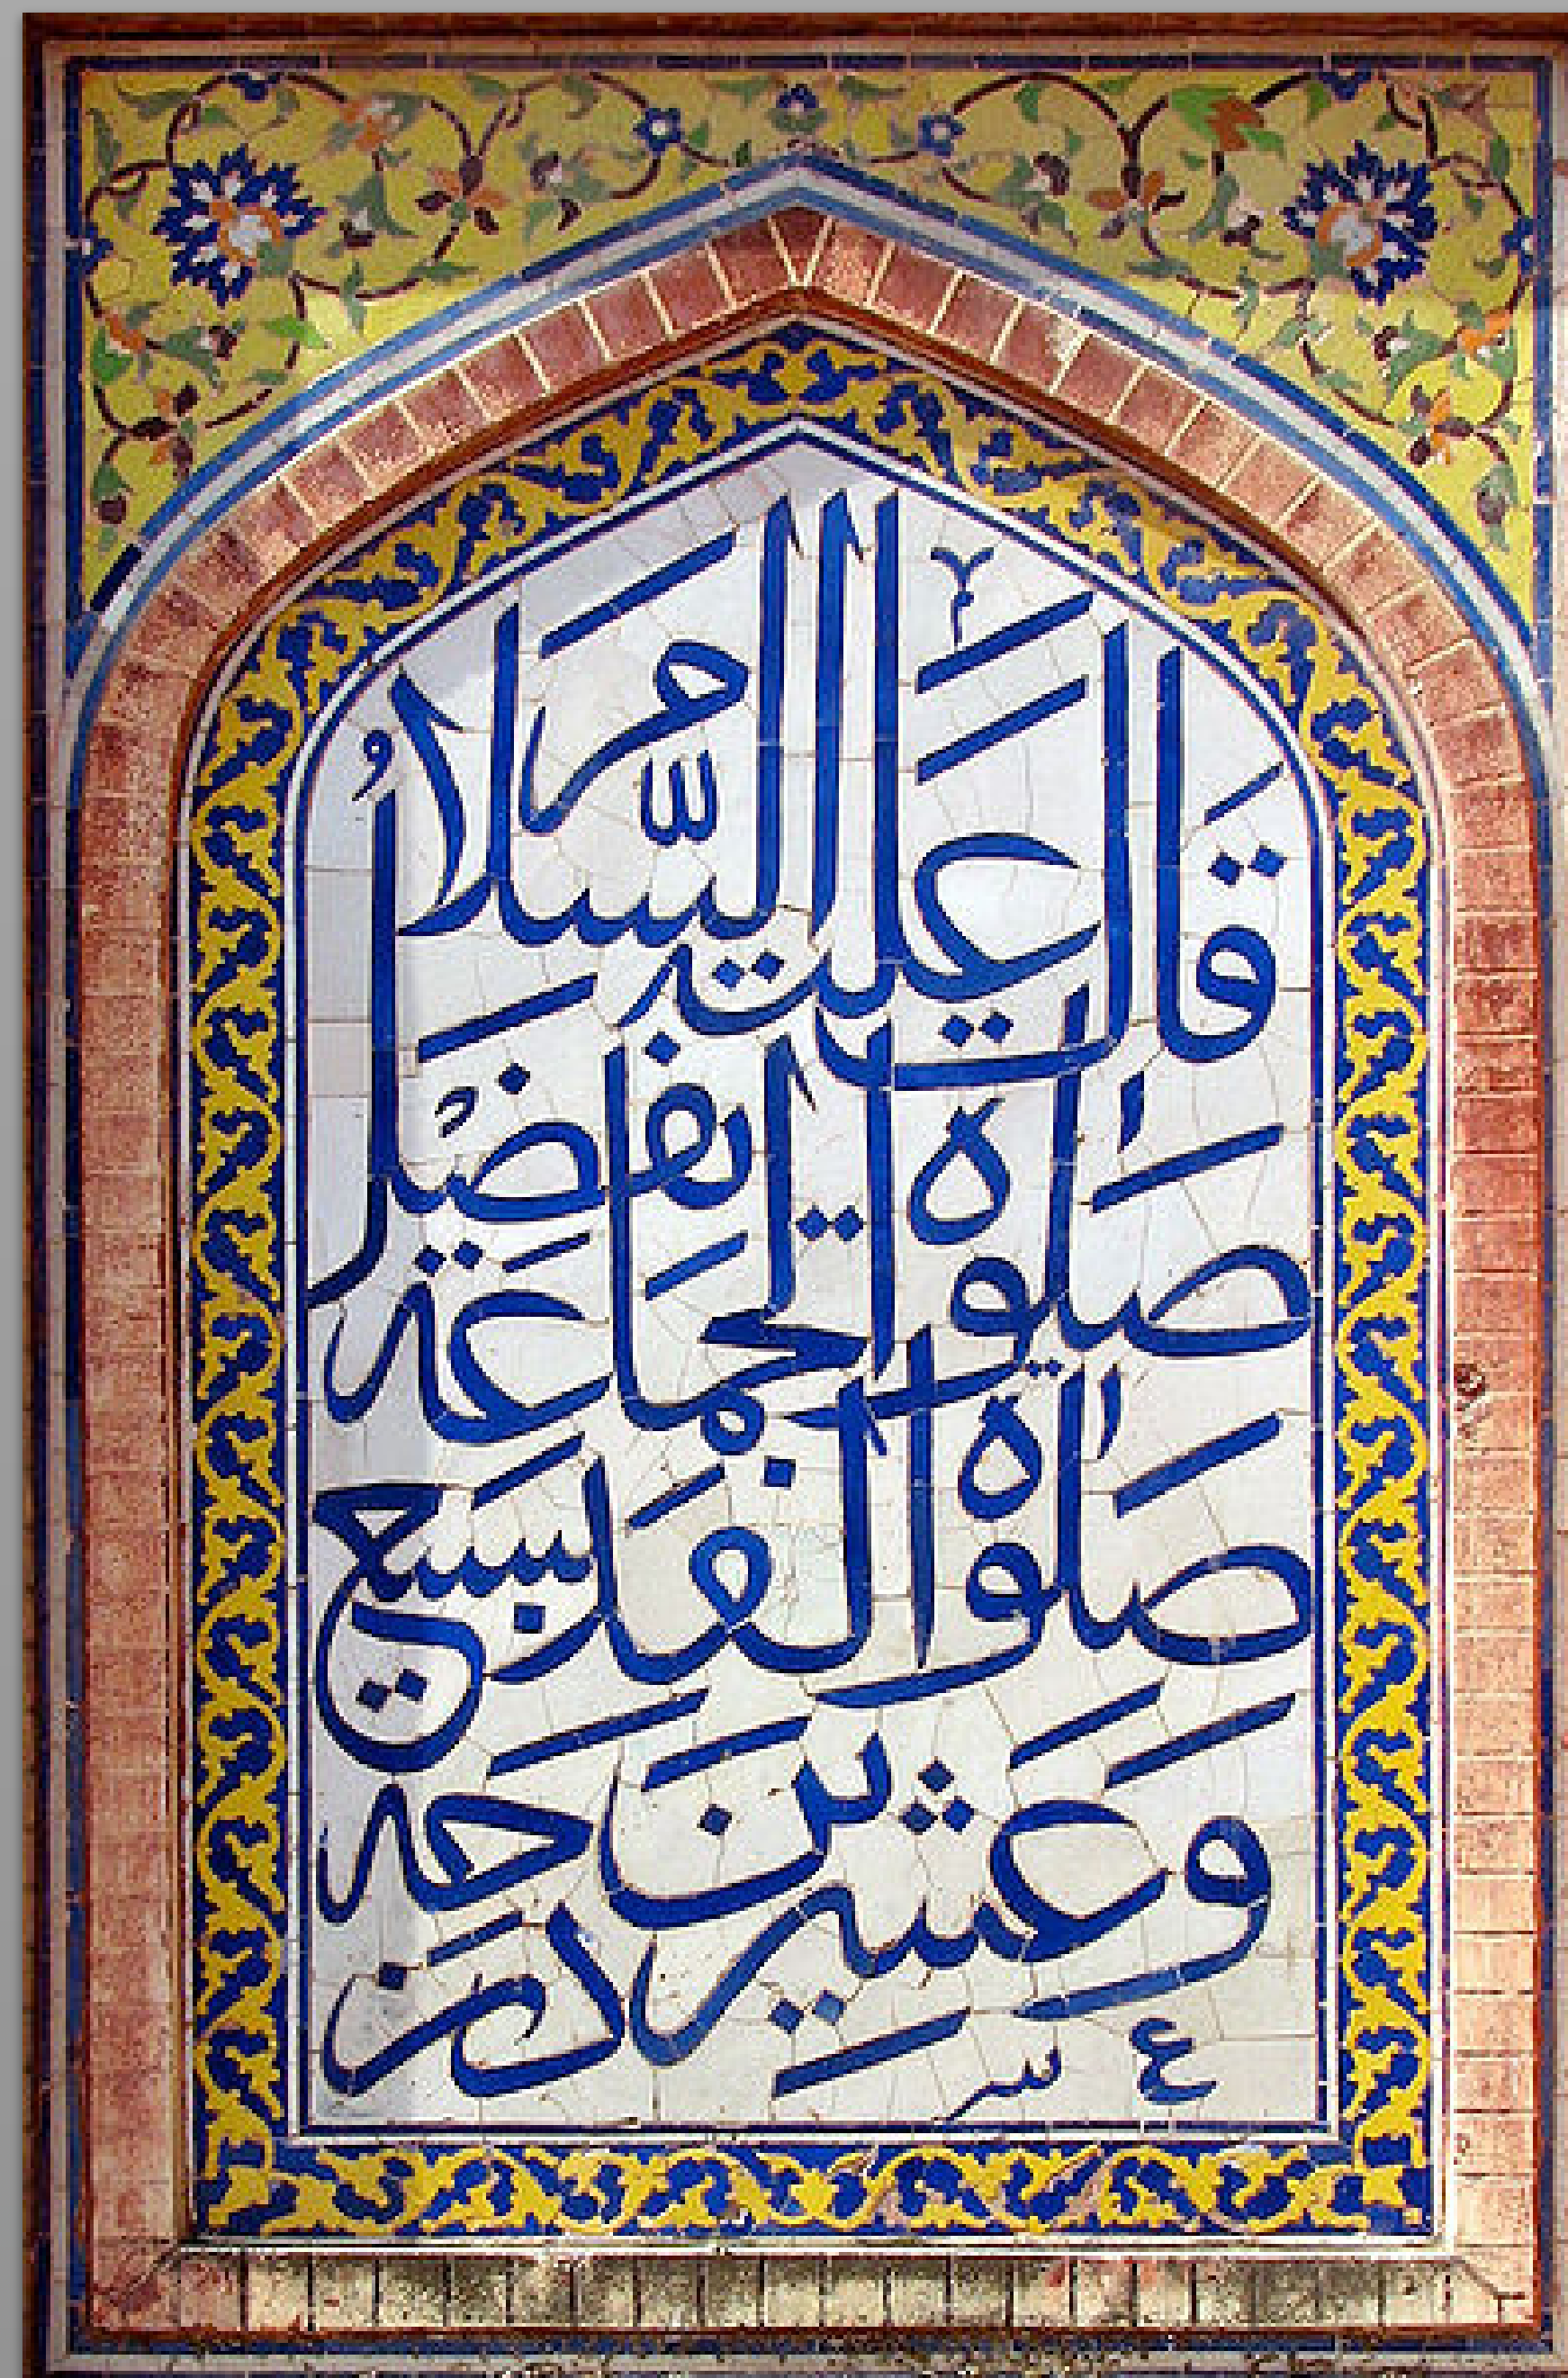 قال عليه السلام
صلوة الجماعة تفضل
صلوة الفذ بسبع
وعشرين درجه